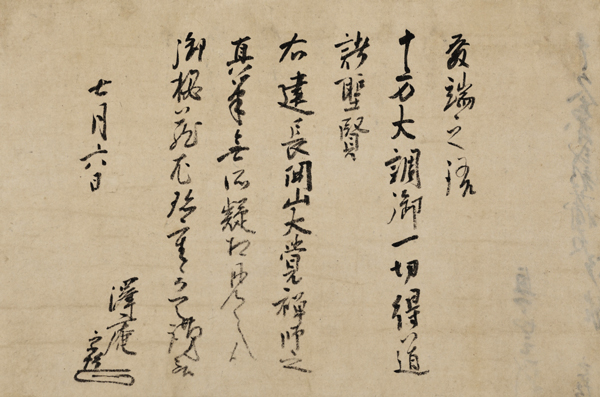 發端之語
十方大調御一切得道
諸聖賢
右建長開山大覺禪師之
真筆無所疑
御秘蔵尤珍重
七月六日
澤庵